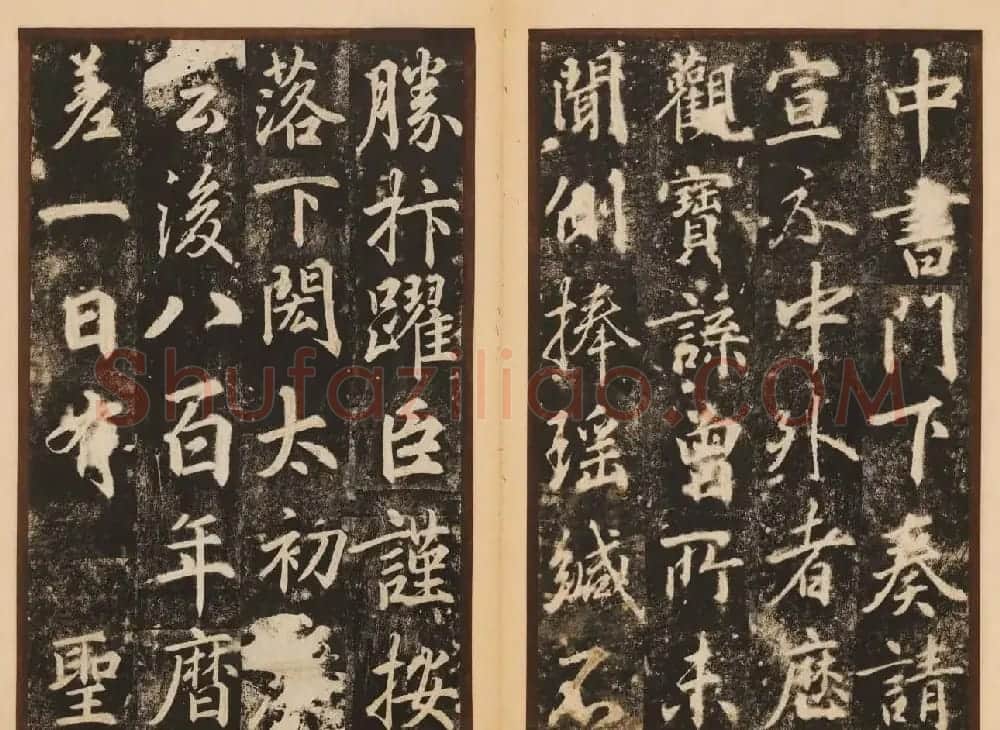 中書門下奏請
宣示中外者歷
觀寶曾所未
聞側捧瑶緘不
勝抃躍臣謹按
落下閎太初
云後八百年暦
差一日有聖
Shufaziliao.COM